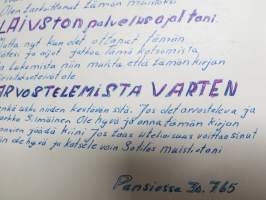 Olen tarkoittanut tämän muistoksi
LAIVASTON palvelusajaltani.
Mutta nyt kun olet ottanut tämän
käteesi ja aijot jatkaa tämä katsomista,
lukemista niin muista että tämän kirjan
ole
ARVOSTELEMISTA VARTEN
enkä aski niiden kestävän sitä. Jos olet arvosteleva ja
silmäinen Ole hyvä ja anna tämän kirjan
jäädä kiini Jos taas uteliaisuus voittaa sinut
niin ole hyvä ja katsele vain Sotilas muistojani
Pansiossa 30.7.65